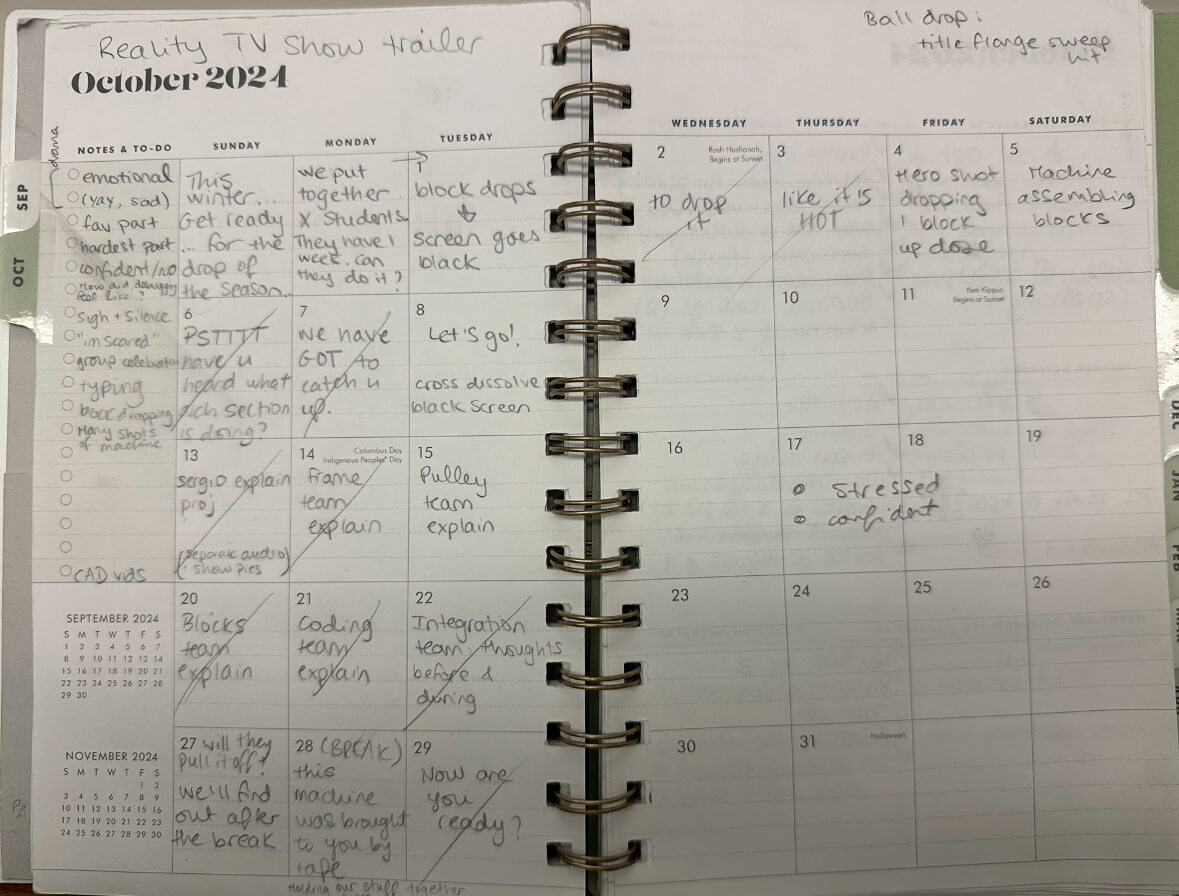 Reality TV Show trailer
October 2024
Ball drop:
title flange sweep
hit
drama
NOTES & TO-DO
emotional
(yay, sad)
fav part
hardest part
confident/no
How did debuggy
feel like?
sigh + silence
"im scared"
group celebration
typing
block dropping
Many shots
of machine
CAD vids
SEPTEMBER 2024
S M T W T F S
1 2 3 4 5 6 7
8 9 10 11 12 13 14
15 16 17 18 19 20 21
22 23 24 25 26 27 28
29 30
NOVEMBER 2024
S M T W T F S
1 2
3 4 5 6 7 8 9
10 11 12 13 14 15 16
17 18 19 20 21 22 23
24 25 26 27 28 29 30
SUNDAY
MONDAY
TUESDAY
WEDNESDAY
THURSDAY
FRIDAY
SATURDAY
This
winter...
Get ready
... for the
drop of
the season.
we put
together
X students
They have 1
week. can
they do it?
1
block drops
↓
screen goes
black
2
Rosh Hashanah,
Begins at Sunset
to drop
it
3
like it is
HOT
4
Hero shot
dropping
1 block
up close
5
Machine
assembling
blocks
6
PSTTTT
have u
heard what
rich section
is doing?
7
we have
GOT to
catch u
up.
8
Let's go!
cross dissolve
black screen
9
10
11
Yom Kippur,
Begins at Sunset
12
13
sergio explain
proj
(separate audio)
show pics
14
Columbus Day
Indigenous Peoples' Day
Frame
team
explain
15
Pulley
team
explain
16
17
18
stressed
confident
19
20
Blocks
team
explain
21
Coding
team
explain
22
Integration
team: thoughts
before &
during
23
24
25
26
27 will they
pull it off?
we'll find
out after
the break
28 (BREAK)
this
machine
was brought
to you by
tape
Holding our stuff together
29
Now are
you
ready?
30
31
Halloween
SEP
OCT
DEC
JAN
FEB